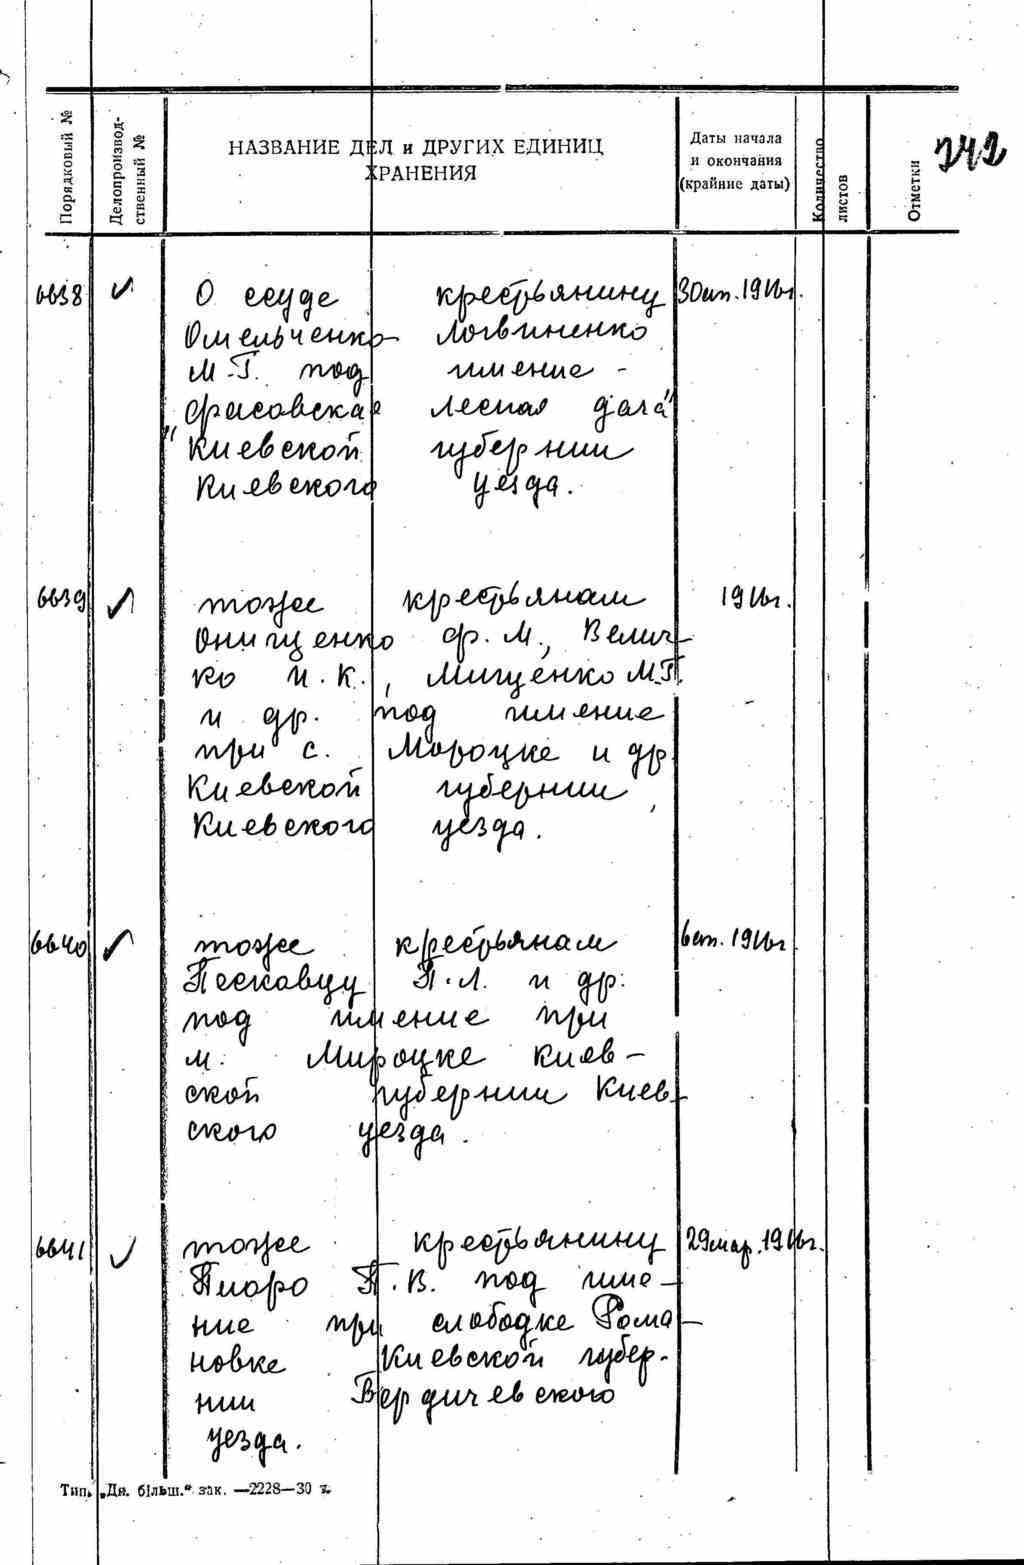 242
Порядковый №
Делопроизвод-
ственный №
НАЗВАНИЕ ДЕЛ и ДРУГИХ ЕДИНИЦ
ХРАНЕНИЯ
Даты начала
и окончания
(крайние даты)
Количество
листов
Отметки
6638 О ссуде крестьянину 30 1916г.
Омельченко-Логвиненко
М.Г. под имение -
лесная дача"
Киевской губернии
Киевского уезда.
6639 тоже крестьянам 1916г.
Онищенко Ф.М., Велич-
ко И.К., Мищенко М.Г.
и др. под имение
при с. Мороцке и др.
Киевской губернии,
Киевского уезда.
6640 тоже крестьянам 1916г
Пескавцу П.Л. и др.
под имение при
м. Мироцке Киев-
ской губернии Киев-
ского уезда.
6641 тоже крестьянину 29 мар. 1916г.
Пиоро П.В. под име-
ние при слободке Рома-
новке Киевской губер-
нии Бердичевского
уезда.
Тип. „Дн. більш." зак. —2228—30 г.